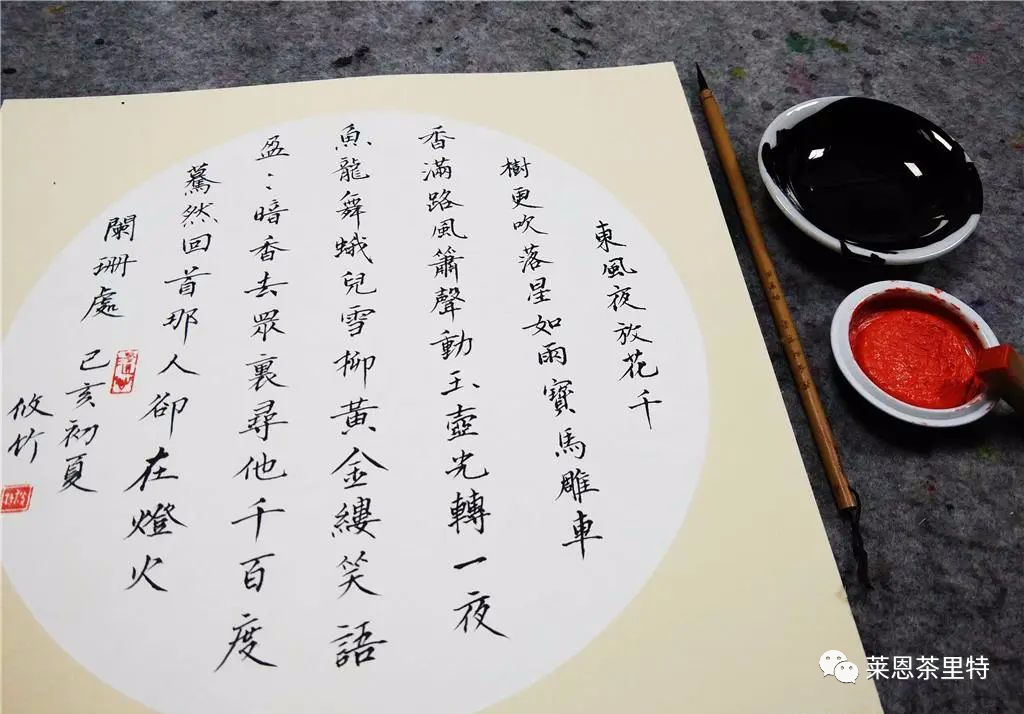 東風夜放花千
樹更吹落星如雨寶馬雕車
香滿路風簫聲動玉壺光轉一夜
魚龍舞蛾兒雪柳黃金縷笑語
盈〻暗香去眾裏尋他千百度
驀然回首那人卻在燈火
闌珊處 己亥初夏
攸竹
莱恩茶里特